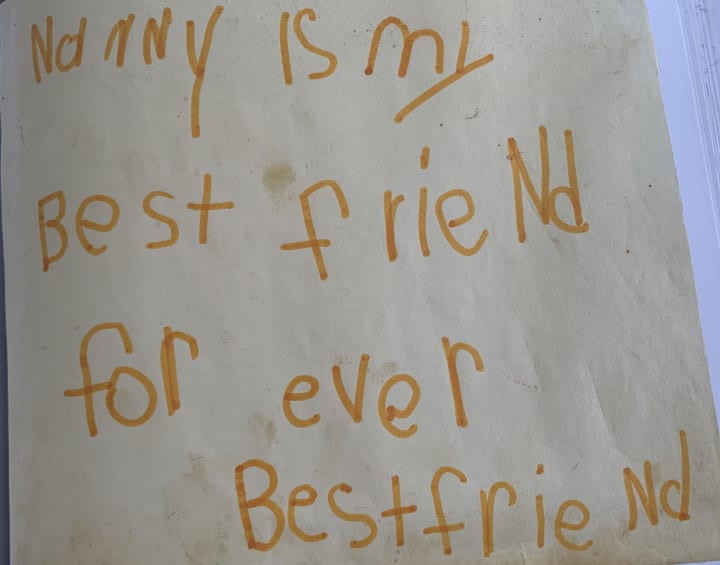 NaNNy IS my
Best frieNd
for ever
BestfrieNd